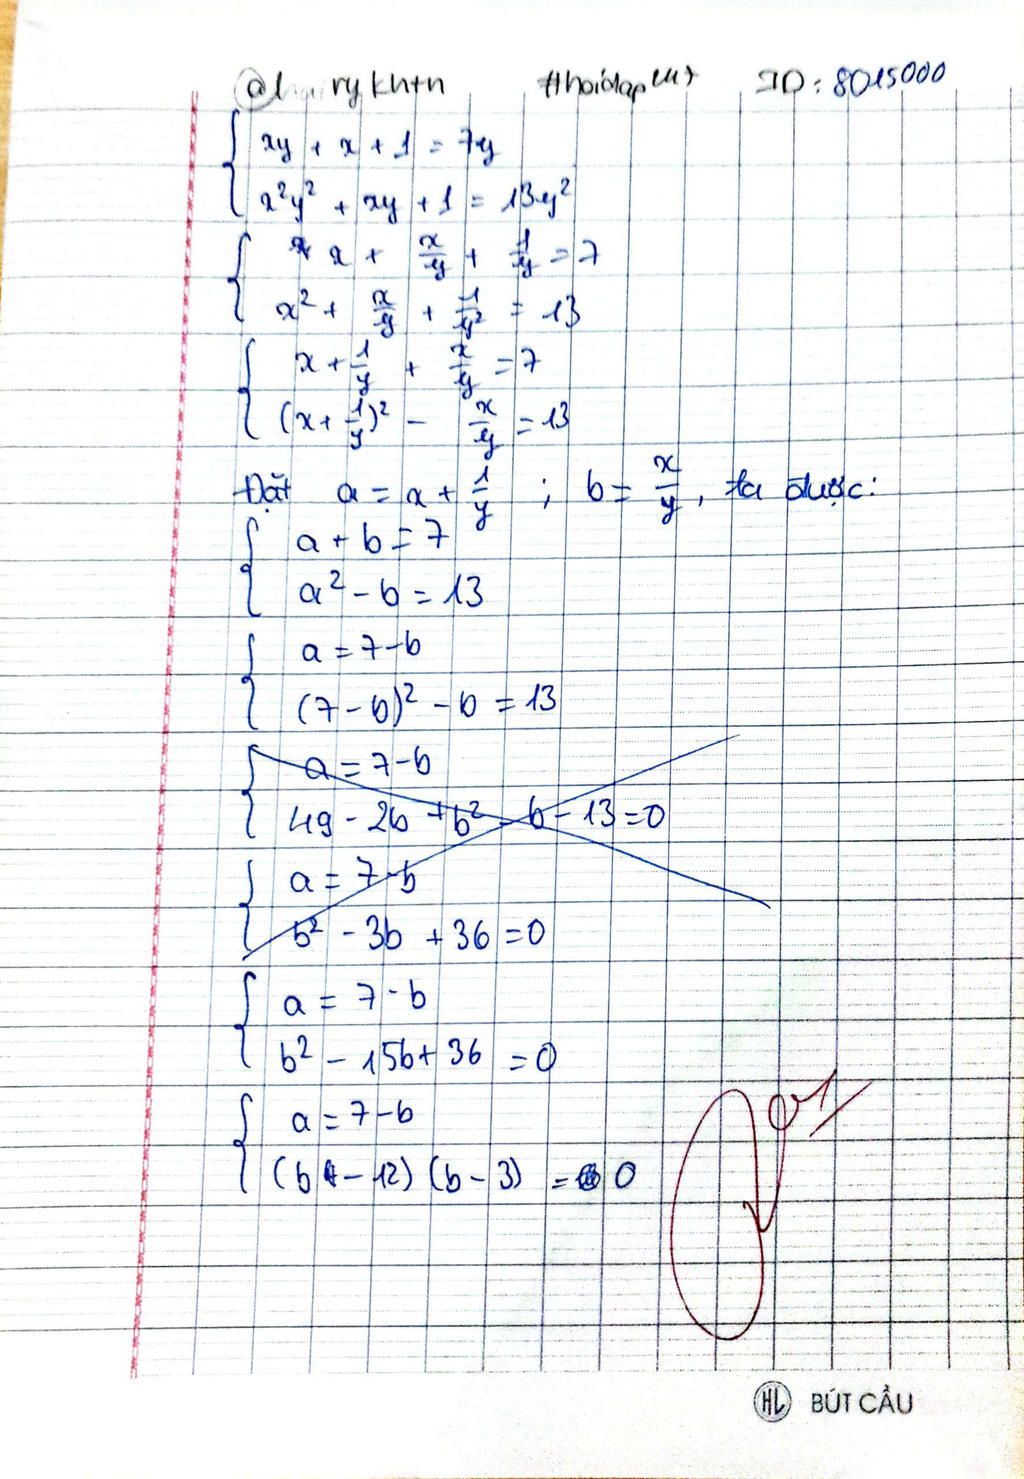 #hoidap247 ID: 8015000
{ xy + x + 1 = 7y
x²y² + xy + 1 = 13y²
{ x + x/y + 1/y = 7
x² + x/y + 1/y² = 13
{ x + 1/y + x/y = 7
(x + 1/y)² - x/y = 13
Đặt a = x + 1/y ; b = x/y, ta được:
{ a + b = 7
a² - b = 13
{ a = 7 - b
(7 - b)² - b = 13
{ a = 7 - b
49 - 2b + b² - b - 13 = 0
{ a = 7 - b
b² - 3b + 36 = 0
{ a = 7 - b
b² - 15b + 36 = 0
{ a = 7 - b
(b - 12) (b - 3) = 0
HL BÚT CẦU